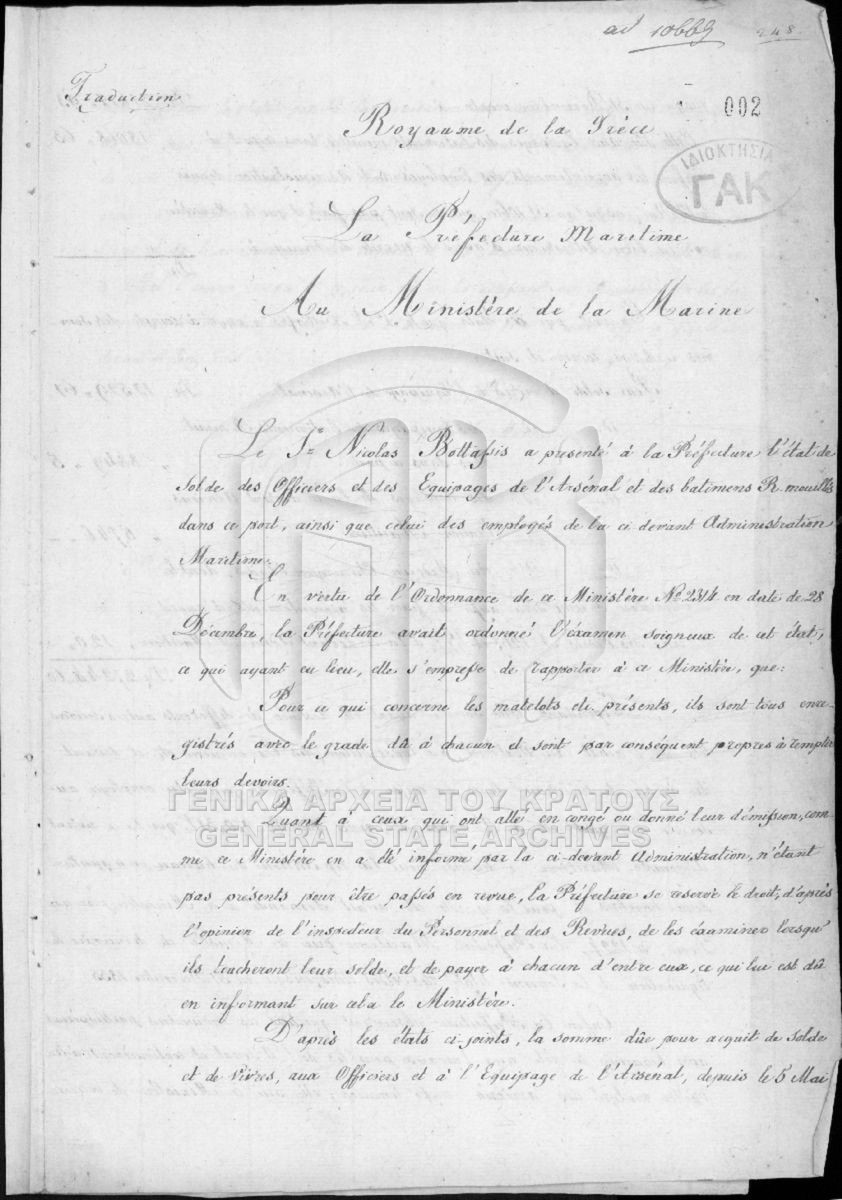 ad 10669 248.
Traduction
002
Royaume de la Grèce
ΙΔΙΟΚΤΗΣΙΑ
ΓΑΚ
La Préfecture Maritime
Au Ministère de la Marine
Le Sr. Nicolas Bottassis a presenté à la Préfecture l'état de
solde des Officiers et des Equipages de l'Arsénal et des batimens R. mouillés
dans ce port, ainsi que celui des employés de la ci devant Administration
Maritime.
En vertu de l'Ordonnance de ce Ministère No 2314 en date de 28
Décembre, la Préfecture avait ordonné l'éxamen soigneux de cet état,
ce qui ayant eu lieu, elle s'empresse de rapporter à ce Ministère, que:
Pour ce qui concerne les matelots etc. présents, ils sont tous enre-
gistrés avec le grade dû à chacun et sont par conséquent propres à remplir
leurs devoirs.
ΓΕΝΙΚΑ ΑΡΧΕΙΑ ΤΟΥ ΚΡΑΤΟΥΣ
Quant à ceux qui ont allé en congé ou donné leur démission, com-
GENERAL STATE ARCHIVES
me ce Ministère en a été informé par la ci-devant Administration, n'étant
pas présents pour être passés en revue, la Préfecture se reserve le droit, d'après
l'opinion de l'inspecteur du Personnel et des Revues, de les éxaminer lorsqu'
ils toucheront leur solde, et de payer à chacun d'entre eux, ce qui lui est dû
en informant sur cela le Ministère.
D'après les états ci-joints, la somme dûe pour acquit de solde
et de vivres, aux Officiers et à l'Equipage de l'Arsénal, depuis le 5 Mai